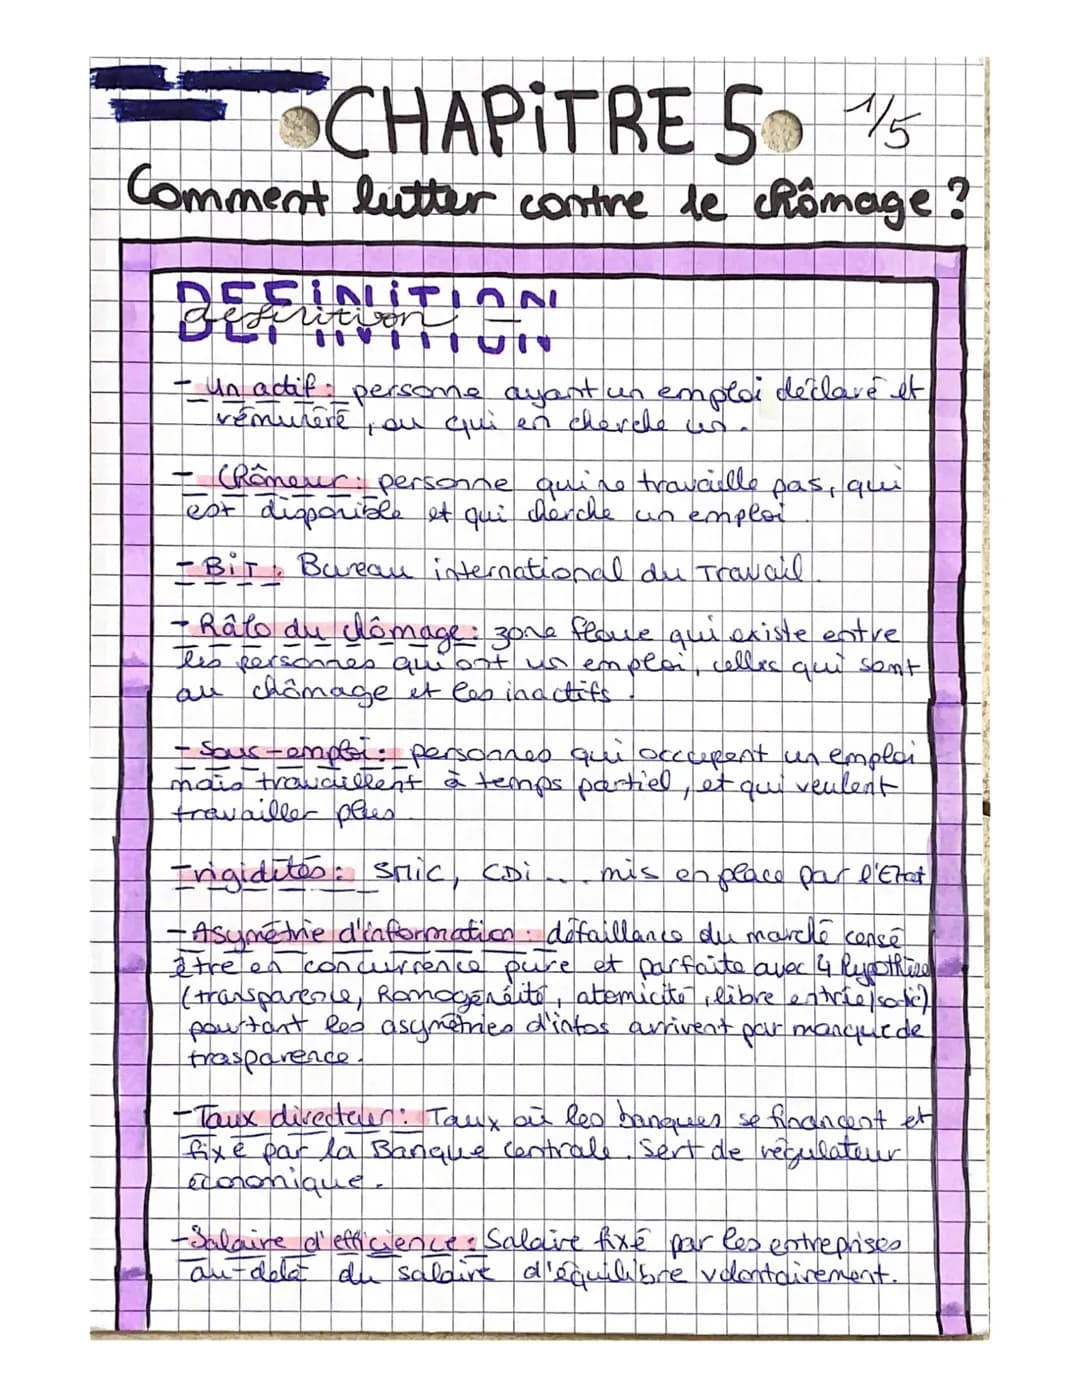 CHAPiTRE 5
1/5
Comment lutter contre le chômage ?
DEFINITION
definition
- Un actif : persome ayant un emploi déclaré et
rémunéré, ou qui en cherche un.
- Chômeur : personne qui ne travaille pas, qui
est disponible et qui cherche un emploi.
- BiT : Bureau international du Travail.
- Hâlo du chômage : zone floue qui existe entre
les personnes qui ont un emploi, celles qui sont
au chômage et les inactifs.
- Sous-emploi : personnes qui occupent un emploi
mais travaillent à temps partiel, et qui veulent
travailler plus.
- rigidités : SMIC, CDi ... mis en place par l'Etat
- Asymétrie d'information : défaillance du marché censé
être en concurrence pure et parfaite avec 4 hypothèse
(transparence, homogénéité, atomicité, libre entrée/sortie)
pourtant les asymétries d'infos arrivent par manque de
trasparence.
- Taux directeur : Taux où les banques se financent et
fixé par la Banque Centrale. Sert de régulateur
économique.
- Salaire d'efficience : Salaire fixé par les entreprises
au-delà du salaire d'équilibre volontairement.